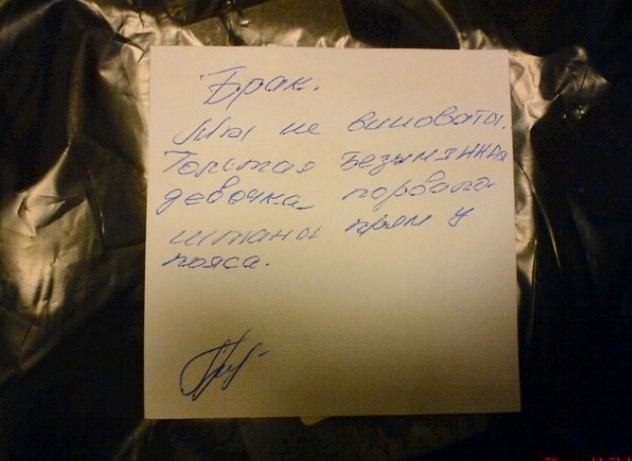 Брак.
Мы не виноваты.
Толстая Безымянная
девочка порвала
штаны прям у
пояса.